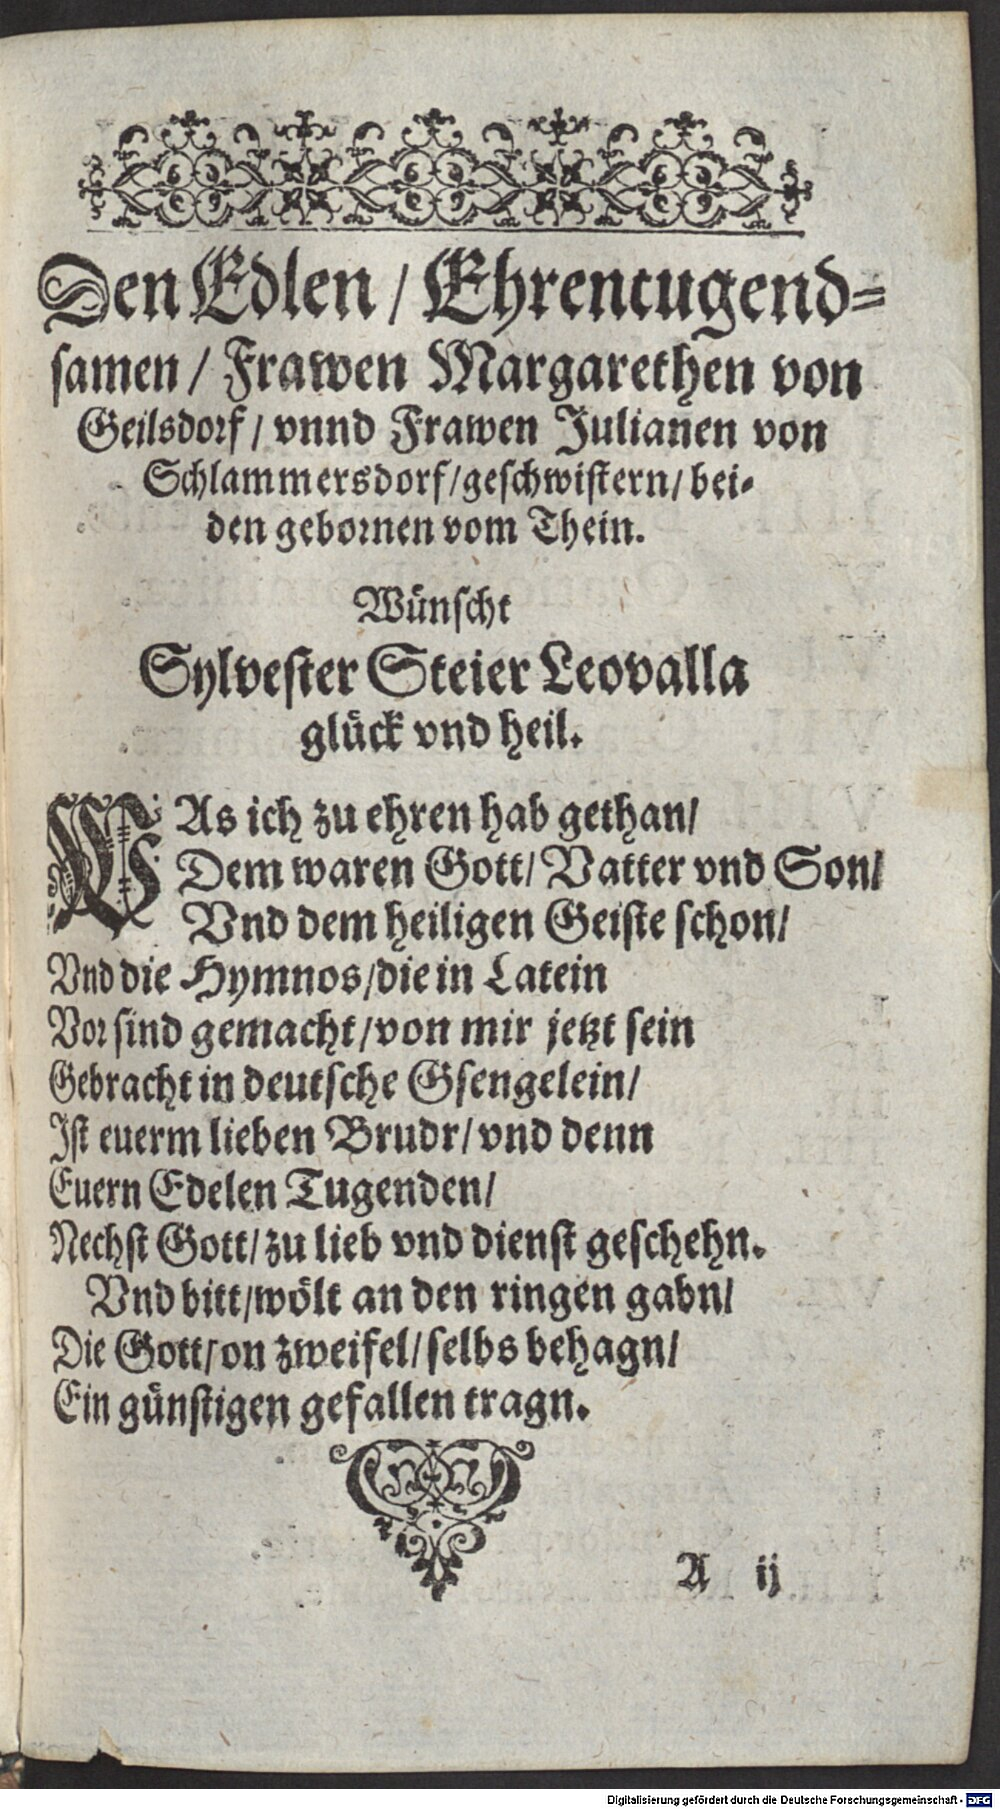 Den Edlen / Ehrentugend-
samen / Frawen Margarethen von
Geilsdorf / vnnd Frawen Julianen von
Schlammersdorf / geschwistern / bei-
den gebornen vom Thein.
Wünscht
Sylvester Steier Leovalla
glück vnd heil.
WAs ich zu ehren hab gethan /
Dem waren Gott / Vatter vnd Son /
Vnd dem heiligen Geiste schon /
Vnd die Hymnos / die in Latein
Vor sind gemacht / von mir jetzt sein
Gebracht in deutsche Gsengelein /
Ist euerm lieben Brudr / vnd denn
Euern Edelen Tugenden /
Nechst Gott / zu lieb vnd dienst geschehn.
Vnd bitt / wölt an den ringen gabn /
Die Gott / on zweifel / selbs behagn /
Ein günstigen gefallen tragn.
A ij
Digitalisierung gefördert durch die Deutsche Forschungsgemeinschaft - DFG